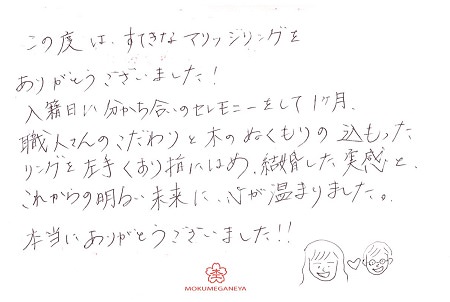 この度は、すてきなマリッジリングを
ありがとうございました！
入籍日に分かち合いのセレモニーをして1ヶ月、
職人さんのこだわりと木のぬくもりの込もった
リングを左手くすり指にはめ、結婚した実感と、
これからの明るい未来に、心が温まりました。
本当にありがとうございました!!
MOKUMEGANEYA